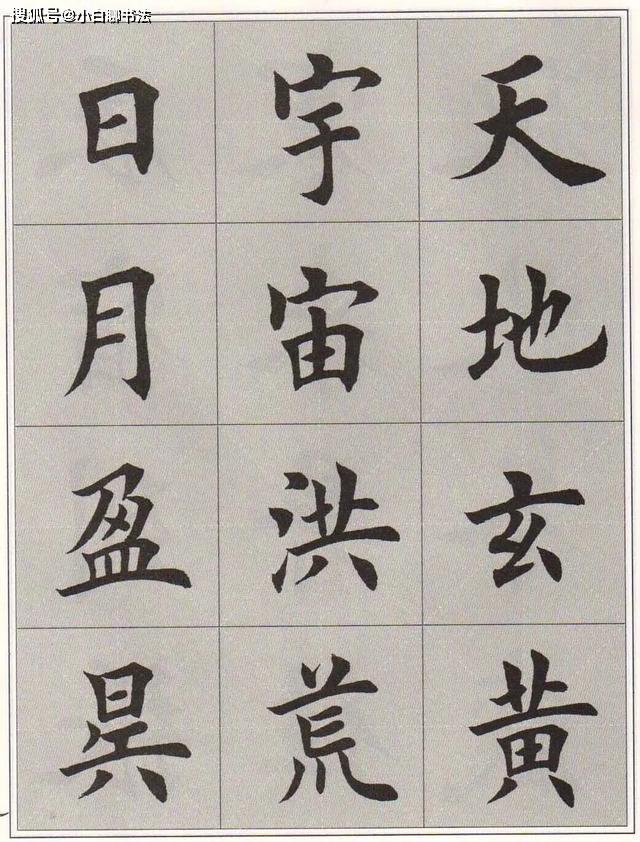 搜狐号@小白聊书法
天地玄黄
宇宙洪荒
日月盈昃